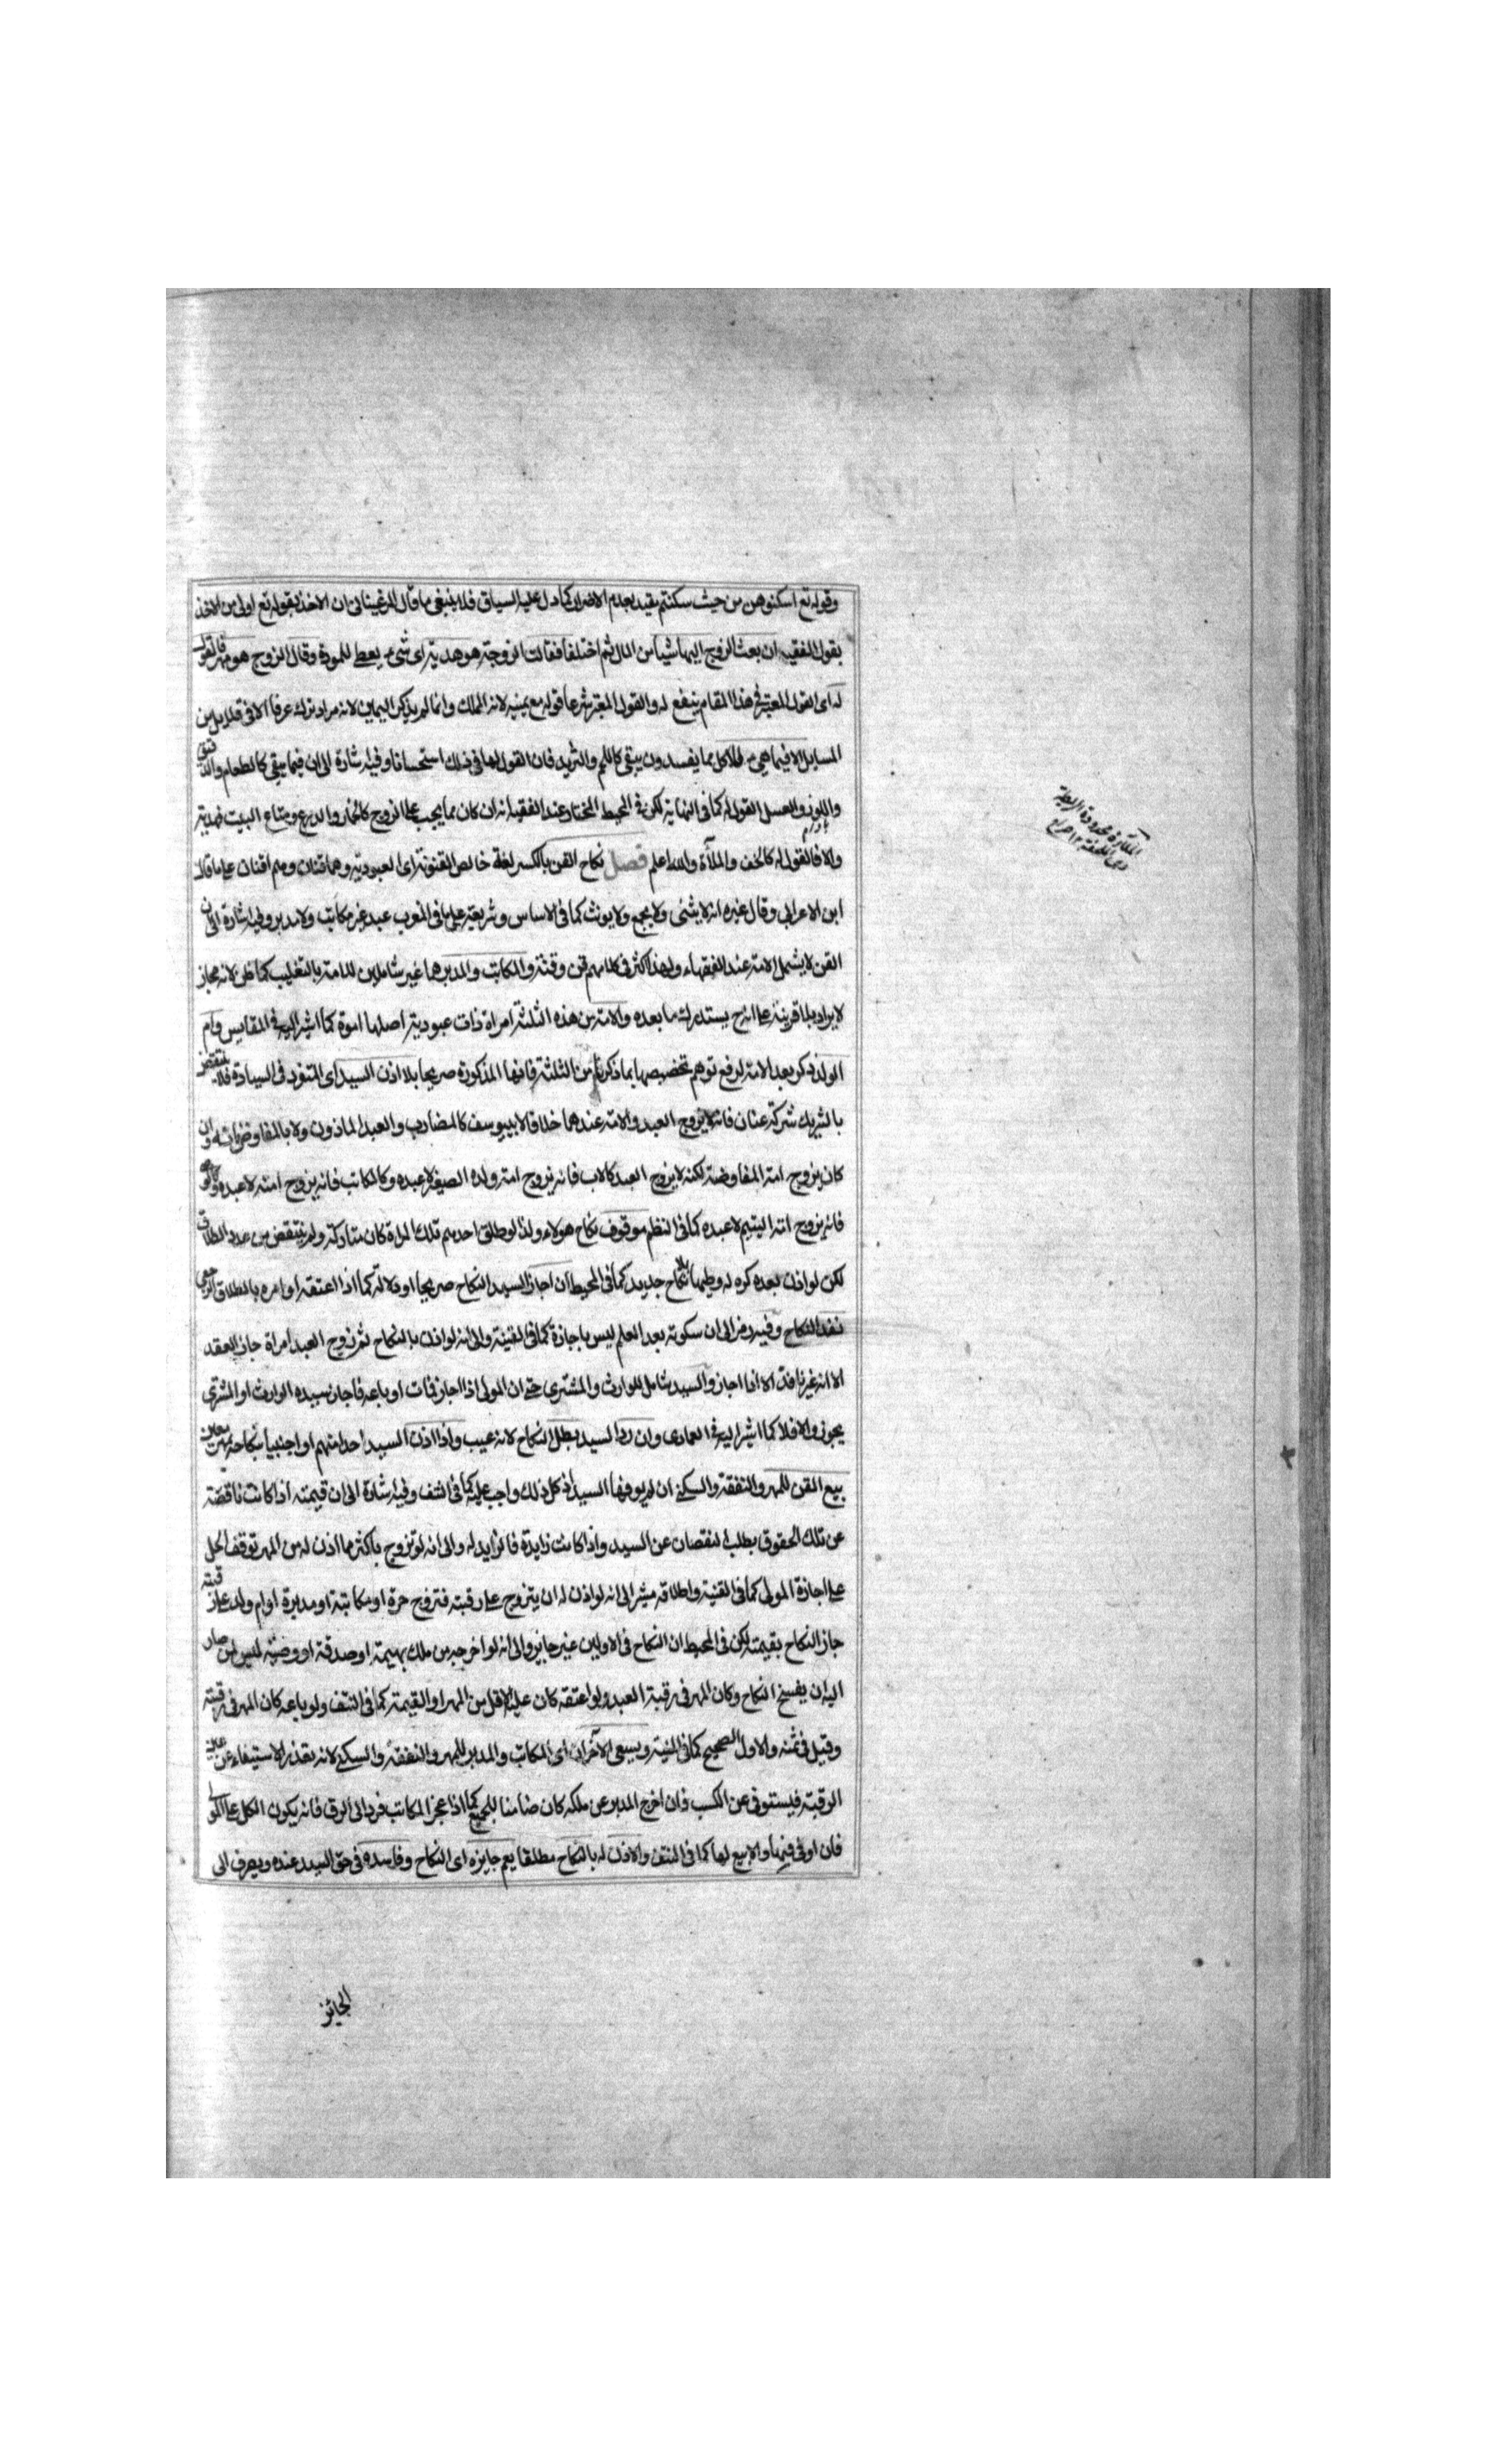 وقوله تع اسكنوهن من حيث سكنتم مقيد بعدم الاضرار كما دل عليه السياق فلا ينبغى ما قال المرغينانى ان الاخذ بقوله تع اولى من الاخذ
بقول الفقيه ان بعث الزوج اليها شيأ من المال ثم اختلفا فقالت الزوجة هو هدية اى شى يعطى للمودة وقال الزوج هو مهر فالقول
له اى القول المعتبر فى هذا المقام ينفع له والقول المعتبر شرعا قوله مع يمينه لانه المملك وانما لم يذكر اليمين لانه مراد ترك عرفا الا فى قليل من
المسايل الا فيما هيئ للاكل مما يفسد ولا يبقى كاللحم والثريد فان القول لها فى ذلك استحسانا وفيه اشارة الى ان فيما يبقى كالطعام والدقيق
واللوز والعسل القول له كما فى النهاية لكن فى المحيط المختار عند الفقيه انه ان كان مما يجب على الزوج كالخمار والدرع ومتاع البيت فهدية
والا فالقول له كالخف والملأة والله اعلم فصل نكاح القن بالكسر لغة خالص القنونة اى العبودية وهما قنان وهم اقنان على ما قال
ابن الاعرابى وقال غيره انه لا يثنى ولا يجمع ولا يونث كما فى الاساس وشريعة على ما فى المغرب عبد غير مكاتب ولا مدبر وفيه اشارة الى ان
القن لا يشمل الامة عند الفقهاء ولهذا كثر فى كلامهم قن وقنة والمكاتب والمدبر هما غير شاملين للامة بالتغليب كما ظن لانه مجاز
لا يراد بلا قرينة على انه ح يستدرك ما بعده والامة من هذه الثلثة امراة ذات عبودية اصلها اموة كما اشير اليه فى المقايس وام
الولد ذكر بعد الامة لرفع توهم تخصيصها بما ذكرنا من الثلثة فانها المذكورة صريحا بلا اذن السيد اى المتفرد فى السيادة فلا ينتقض
بالشريك شركة عنان فانه لا يزوج العبد والامة عندهما خلافا لابى يوسف كالمضارب والعبد الماذون ولا بالمفاوض فانه وان
كان يزوج امة المفاوضة لكنه لا يزوج العبد كالاب فانه يزوج امة ولده الصغير لا عبده وكالمكاتب فانه يزوج امته لا عبده وكالوصى
فانه يزوج امة اليتيم لا عبده كما فى النظم موقوف نكاح هولاء ولذا لو طلق احدهم تلك المراة كان متاركة ولم ينتقض من عدد الطلاق
لكن لو اذن بعده كره له وطيها بلا نكاح جديد كما فى المحيط ان اجاز السيد النكاح صريحا او دلالة كما اذا اعتقه او امره بالطلاق الرجعى
نفذ النكاح وفيه رمز الى ان سكوته بعد العلم ليس باجازة كما فى القنية والى انه لو اذن بالنكاح ثم زوج العبد امراة جاز العقد
الا انه غير نافذ الا اذا اجاز والسيد شامل للوارث والمشترى حتى ان المولى اذا اجاز فمات او باعه فاجاز سيده الوارث او المشترى
يجوز والا فلا كما اشير اليه فى العمادى وان رد السيد بطل النكاح لانه عيب واذا اذن السيد احدا منهم او اجنبيا بنكاحه
بيع القن للمهر والنفقة والسكنى ان لم يوفها السيد اذ كل ذلك واجب عليه كما فى النتف وفيه اشارة الى ان قيمته اذا كانت ناقصة
عن تلك الحقوق يطلب النقصان عن السيد واذا كانت زايدة فالزايد له والى انه لو تزوج باكثر مما اذن له من المهر توقف الحل
على اجازة المولى كما فى القنية واطلاقه مشير الى انه لو اذن له ان يتزوج على رقبته فتزوج حرة او مكاتبة او مدبرة او ام ولد على رقبته
جاز النكاح بقيمته لكن فى المحيط ان النكاح فى الاوليين غير جايز والى انه لو اخرجه من ملك بهيمة او صدقة او وصية ليس لمن صار
اليه ان يفسخ النكاح وكان المهر فى رقبة العبد ولو اعتقه كان عليه الاقل من المهر او القيمة كما فى النتف ولو باعه كان المهر فى رقبته
وقيل فى ثمنه والاول الصحيح كما فى المنية ويسعى الآخران اى المكاتب والمدبر للمهر والنفقة والسكنى لانه يتعذر الاستيفاء عن عين
الرقبة فيستوفى عن الكسب فان اخرج المدبر عن ملكه كان ضامنا للجميع كما اذا عجز المكاتب فرد الى الرق فانه يكون الكل على المولى
فان اوفى قيمتها والا بيع لها كما فى النتف والاذن له بالنكاح مطلقا يعم جايزه اى النكاح وفاسده فى حق السيد عنده ويصرف الى
الجائز